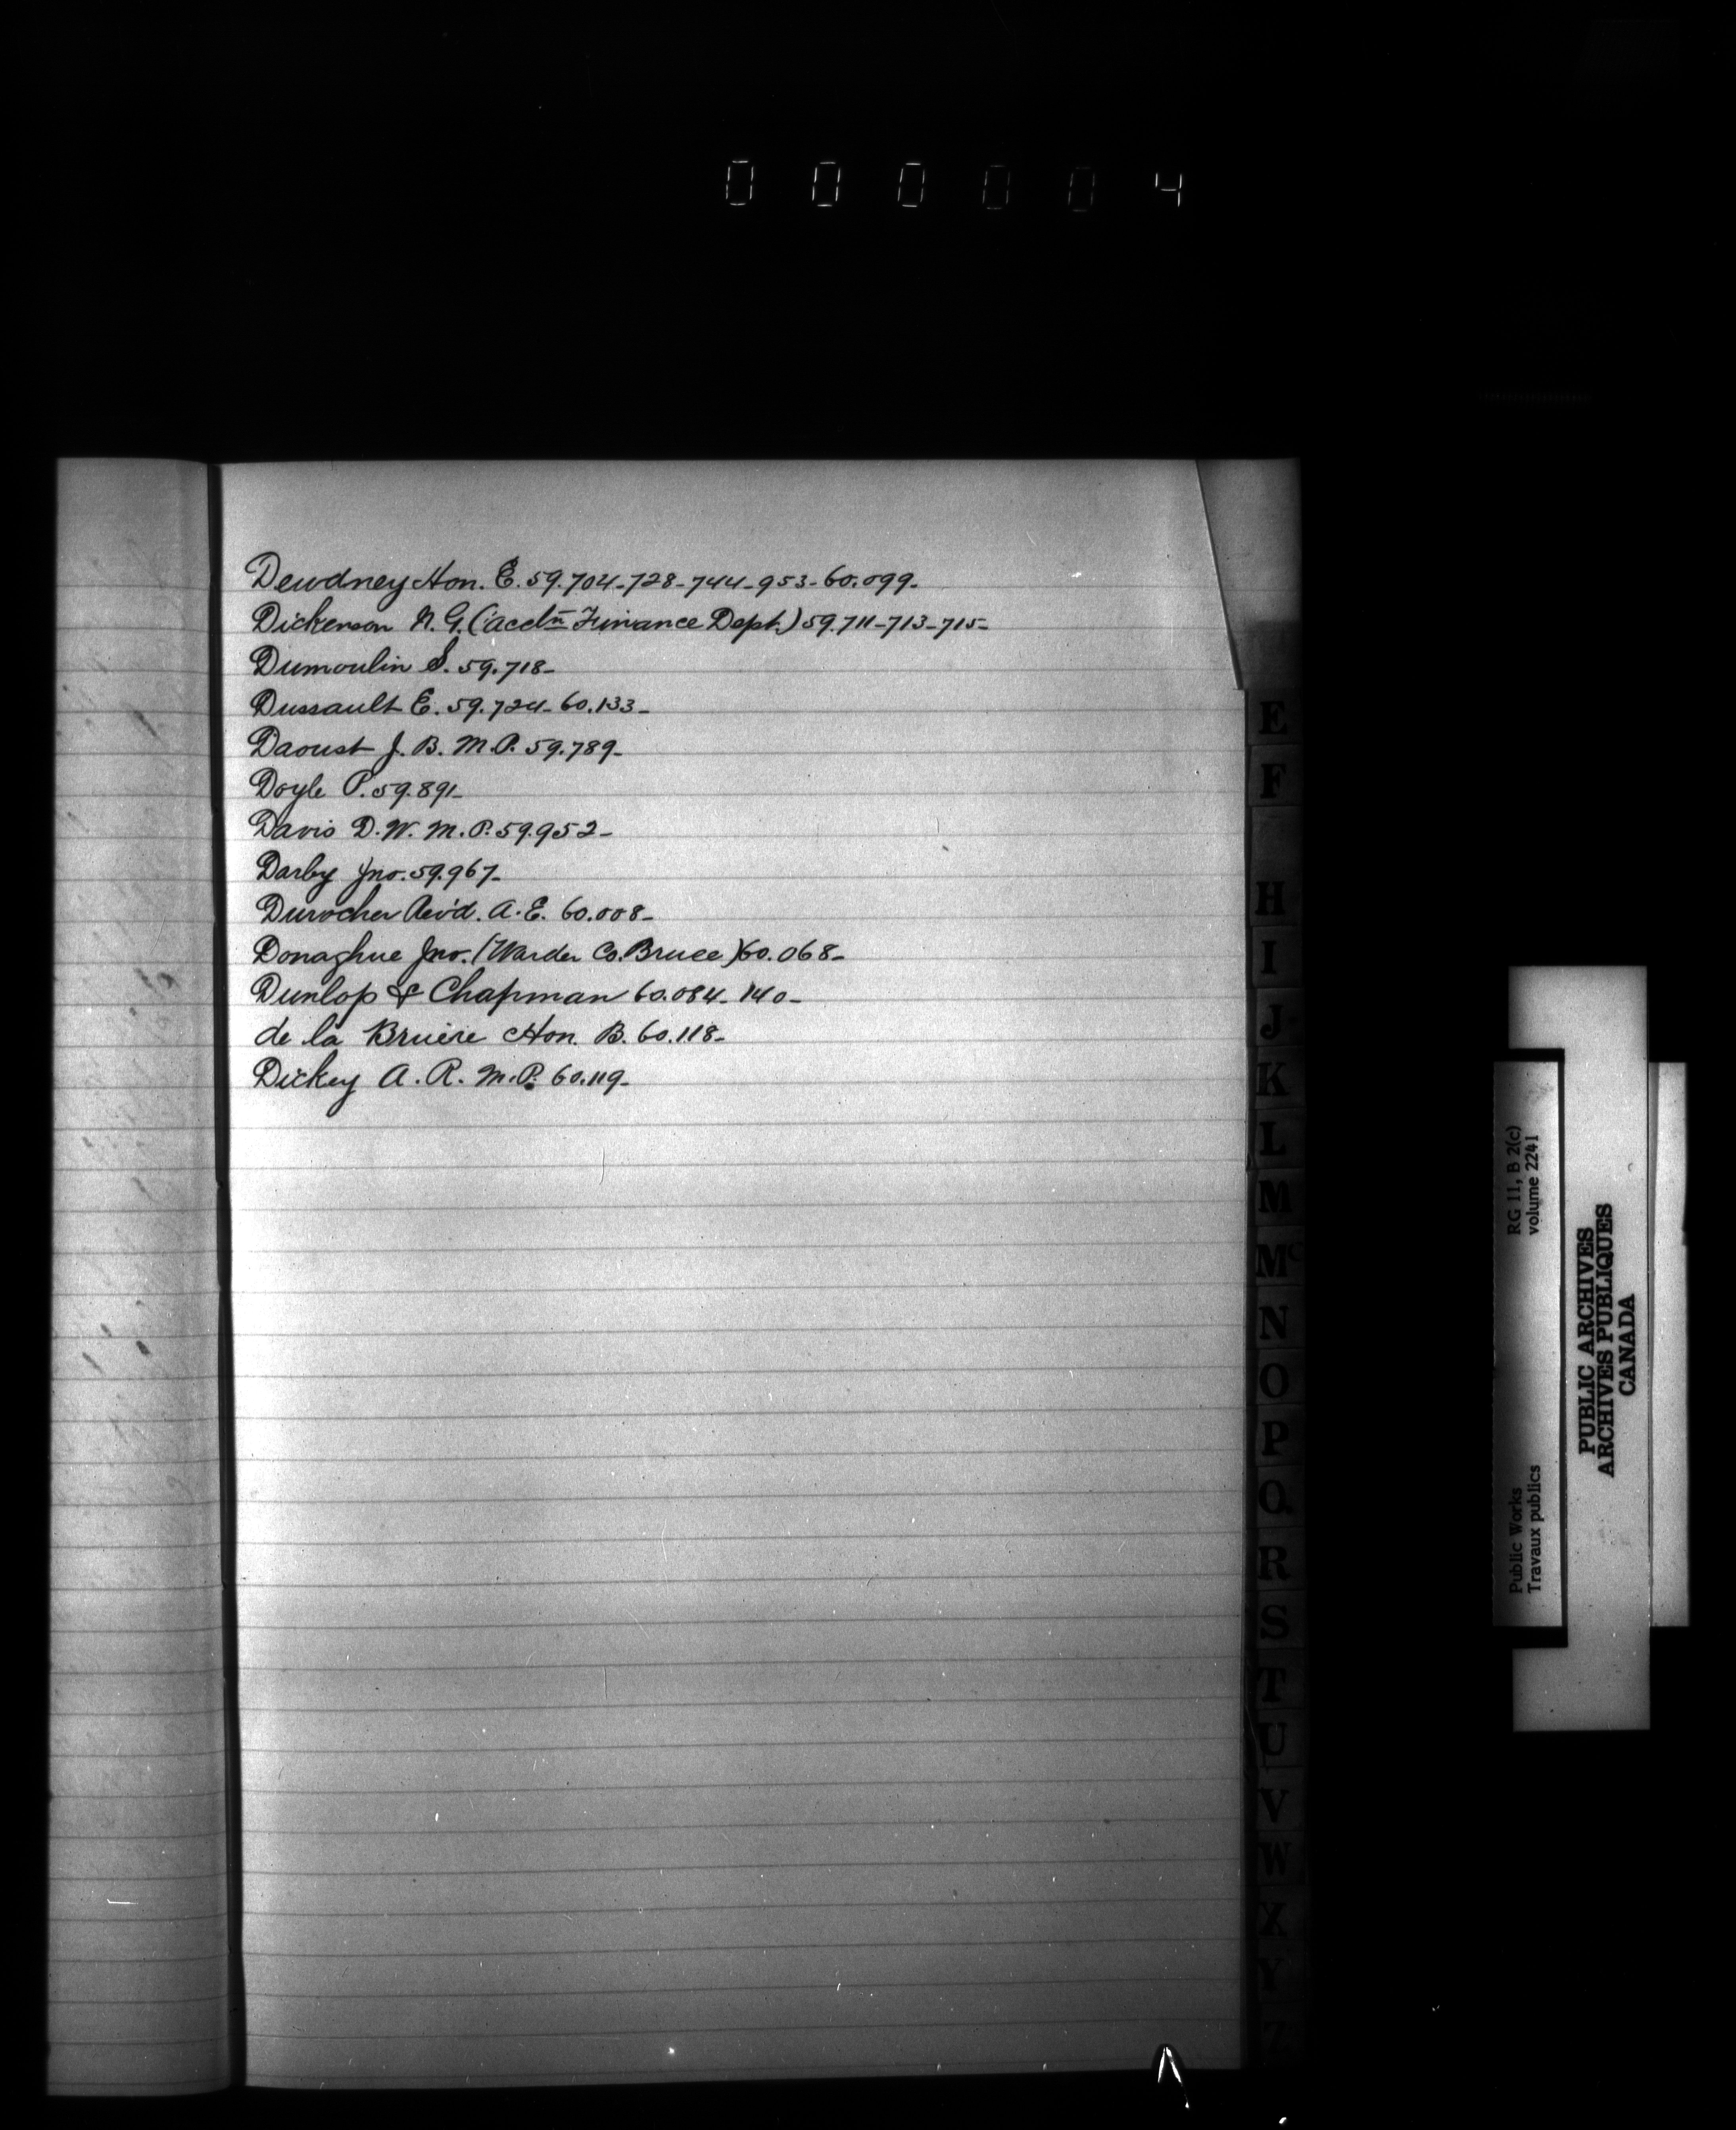 000004
Dewdney Hon. E. 59.704-728-744-953-60.099-
Dickenson N. G. (acctn Finance Dept.) 59.711-713-715-
Dumoulin S. 59.718-
Dussault E. 59.724-60.133-
Daoust J. B. M.P. 59.789-
Doyle P. 59.891-
Davis D. W. M. P. 59.952-
Darby Jno. 59.967-
Durocher Rev'd. A. E. 60.008-
Donaghue Jno. (Warden Co. Bruce) 60.068-
Dunlop & Chapman 60.084-140-
de la Bruère Hon. B. 60.118-
Dickey A. R. M.P. 60.119-
E
F
H
I
J
K
L
M
Mc
N
O
P
Q
R
S
T
U
V
W
X
Y
Z
RG 11, B 2(c)
volume 2241
Public Works
Travaux publics
PUBLIC ARCHIVES
ARCHIVES PUBLIQUES
CANADA